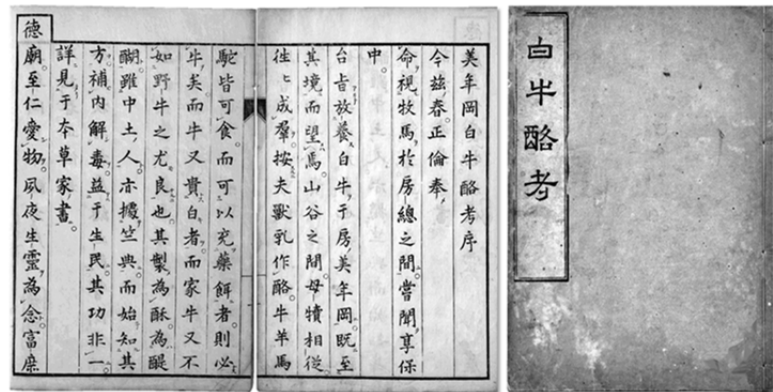 白牛酪考
美年岡白牛酪考序
今玆春正倫奉
命視牧馬於房總之間嘗聞享保
中
台旨放養白牛于房美年岡既至
其境而望焉山谷之間母犢相從
徃々成羣按夫獸乳作酪牛羊馬
駝皆可食而可以充藥餌者則必
牛矣而牛又貴白者而家牛又不
如野牛之尤良也其製為酥為醍
醐雖中土人亦據竺典而始知其
方補内解毒益于生民其功非一
詳見于本草家書
德
廟至仁愛物夙夜生靈為念富庶